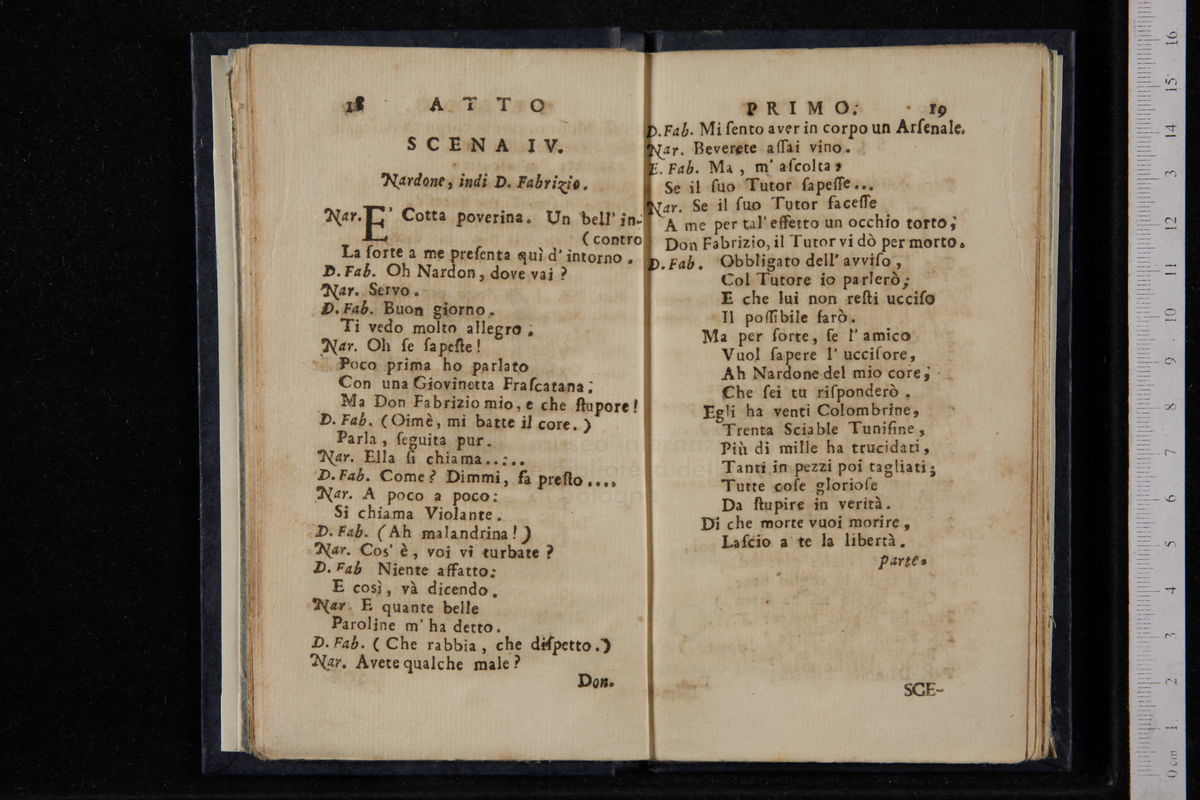 18 ATTO
SCENA IV.
Nardone, indi D. Fabrizio.
Nar. E' Cotta poverina. Un bell' in-
(contro
La ſorte a me preſenta quì d' intorno.
D. Fab. Oh Nardon, dove vai?
Nar. Servo.
D. Fab. Buon giorno.
Ti vedo molto allegro.
Nar. Oh ſe ſapeſte!
Poco prima ho parlato
Con una Giovinetta Fraſcatana;
Ma Don Fabrizio mio, e che ſtupore!
D. Fab. (Oimè, mi batte il core.)
Parla, ſeguita pur.
Nar. Ella ſi chiama.....
D. Fab. Come? Dimmi, fa preſto....
Nar. A poco a poco:
Si chiama Violante.
D. Fab. (Ah malandrina!)
Nar. Cos' è, voi vi turbate?
D. Fab Niente affatto:
E così, và dicendo.
Nar. E quante belle
Paroline m' ha detto.
D. Fab. (Che rabbia, che diſpetto.)
Nar. Avete qualche male?
Don.
PRIMO. 19
D. Fab. Mi ſento aver in corpo un Arſenale.
Nar. Beverete aſſai vino.
E. Fab. Ma, m' aſcolta,
Se il ſuo Tutor ſapeſſe...
Nar. Se il ſuo Tutor faceſſe
A me per tal' effetto un occhio torto;
Don Fabrizio, il Tutor vi dò per morto.
D. Fab. Obbligato dell' avviſo,
Col Tutore io parlerò;
E che lui non reſti ucciſo
Il poſſibile farò.
Ma per ſorte, ſe l' amico
Vuol ſapere l' ucciſore,
Ah Nardone del mio core;
Che ſei tu riſponderò.
Egli ha venti Colombrine,
Trenta Sciable Tuniſine,
Più di mille ha trucidati,
Tanti in pezzi poi tagliati;
Tutte coſe glorioſe
Da ſtupire in verità.
Di che morte vuoi morire,
Laſcio a te la libertà.
parte.
SCE-
0 cm 1 2 3 4 5 6 7 8 9 10 11 12 13 14 15 16